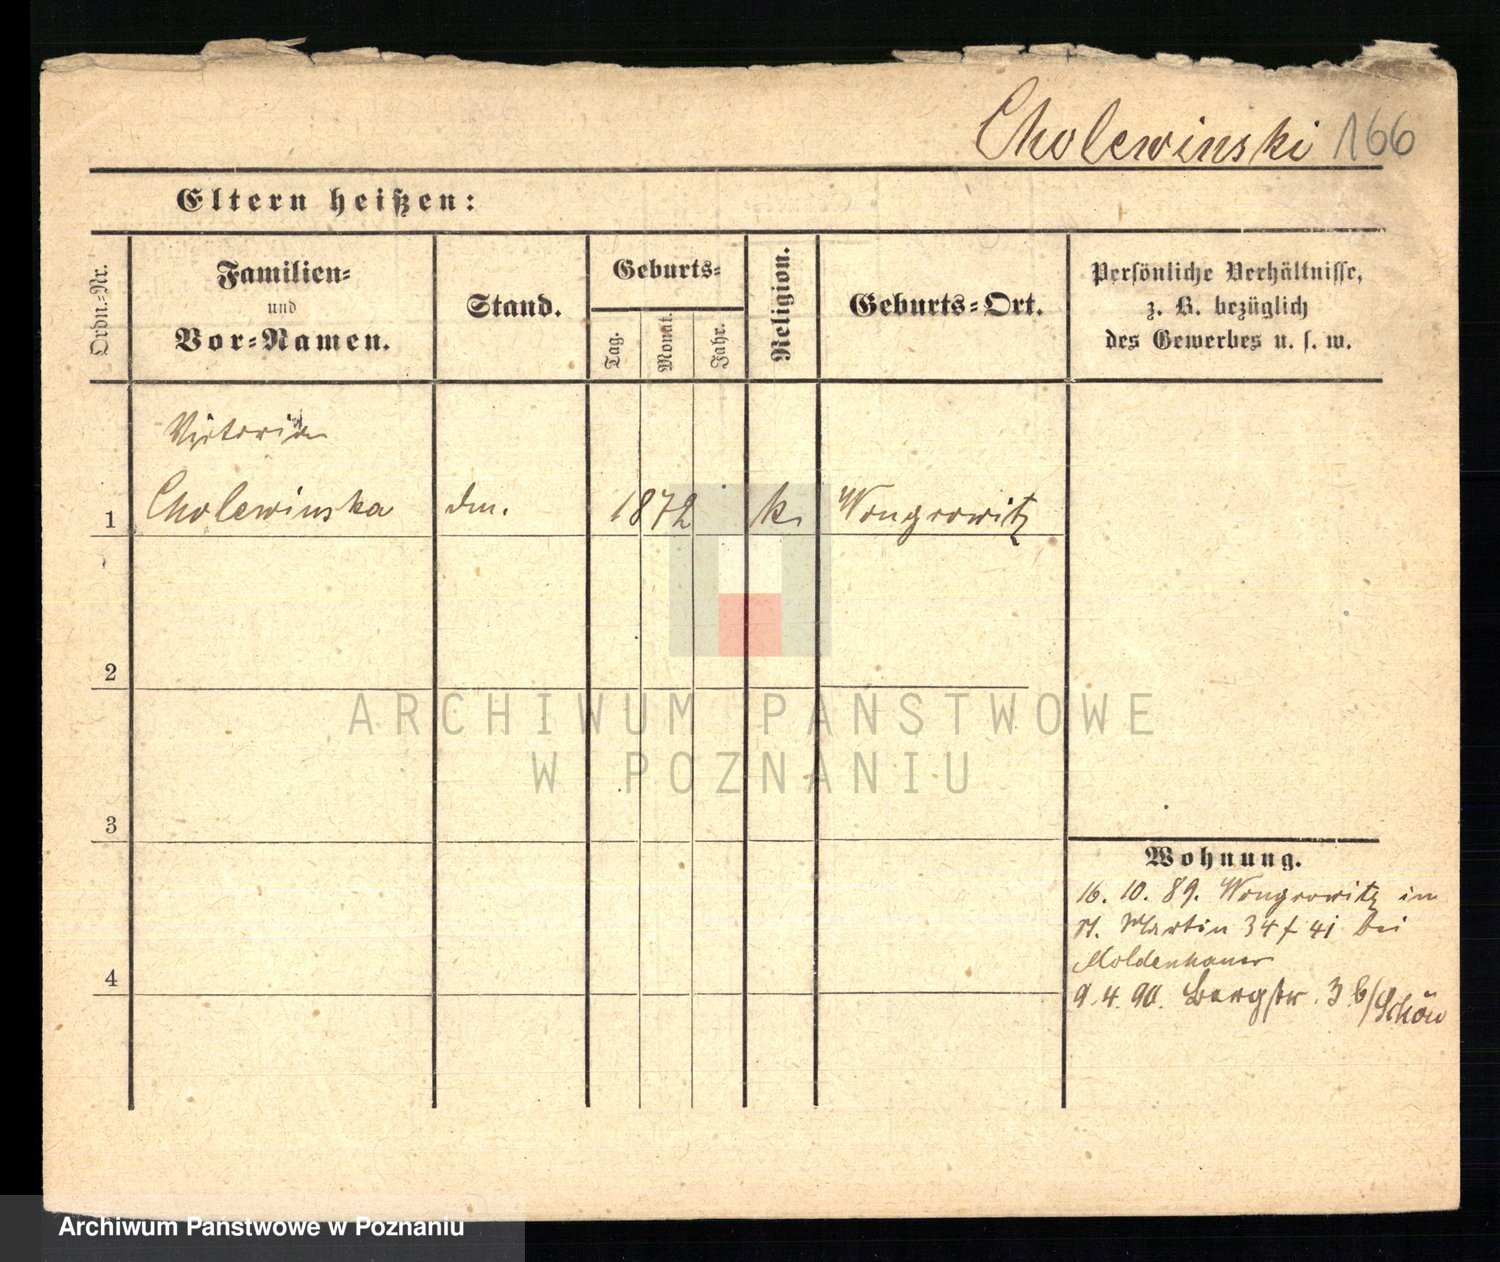 Cholewinski 166
Eltern heißen:
Ordn.-Nr.
Familien-
und
Vor-Namen.
Stand.
Geburts-
Tag.
Monat.
Jahr.
Religion.
Geburts-Ort.
Persönliche Verhältnisse,
z. B. bezüglich
des Gewerbes u. s. w.
Victoria
1 Cholewinska dm. 1872 k. Wongrowitz
2
3
4
Wohnung.
16. 10. 89. Wongrowitz in
St. Martin 34 41 bei
Moldenhauer
9. 4. 90. Bergstr. 3 b/Schön
ARCHIWUM PAŃSTWOWE
W POZNANIU
Archiwum Państwowe w Poznaniu